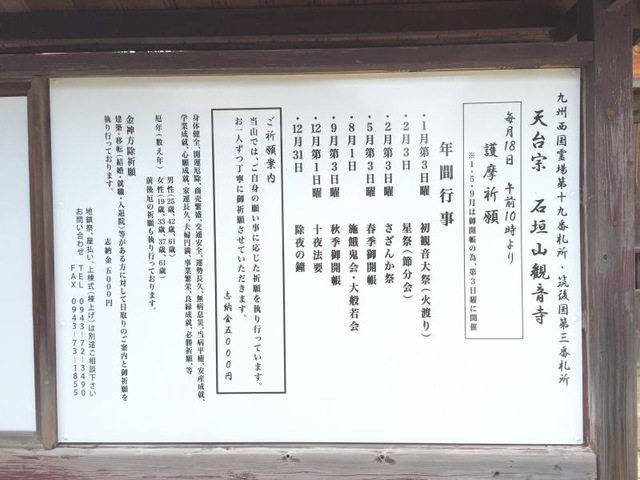 九州西国霊場第十九番札所・筑後国第三番札所
天台宗 石垣山観音寺
毎月18日 午前10時より
護摩祈願
※1・5・9月は御開帳の為、第3日曜に開催
年間行事
・1月第3日曜 初観音大祭（火渡り）
・2月3日 星祭（節分会）
・2月第3日曜 さざんか祭
・5月第3日曜 春季御開帳
・8月1日 施餓鬼会・大般若会
・9月第3日曜 秋季御開帳
・12月第1日曜 十夜法要
・12月31日 除夜の鐘
ご祈願案内
当山では、ご自身の願い事に応じた祈願を執り行っています。
お一人ずつ丁寧に御祈願させていただきます。
志納金五〇〇〇円
身体健全、開運厄除、商売繁盛、交通安全、運勢長久、無病息災、当病平癒、安産成就、
学業成就、心願成就、家運長久、夫婦円満、事業繁栄、良縁成就、必勝祈願、等
厄年（数え年） 男性（25歳、42歳、61歳）
女性（19歳、33歳、37歳、61歳）
前後厄の祈願も執り行っております。
金神方除祈願 志納金 5000円
建築・移転（結婚・就職・入退院）等がある方に対して日取りのご案内と御祈願を
執り行っております。
地鎮祭、屋払い、上棟式（棟上げ）は別途ご相談下さい
お問い合わせ TEL 0943-72-3490
FAX 0943-73-1855